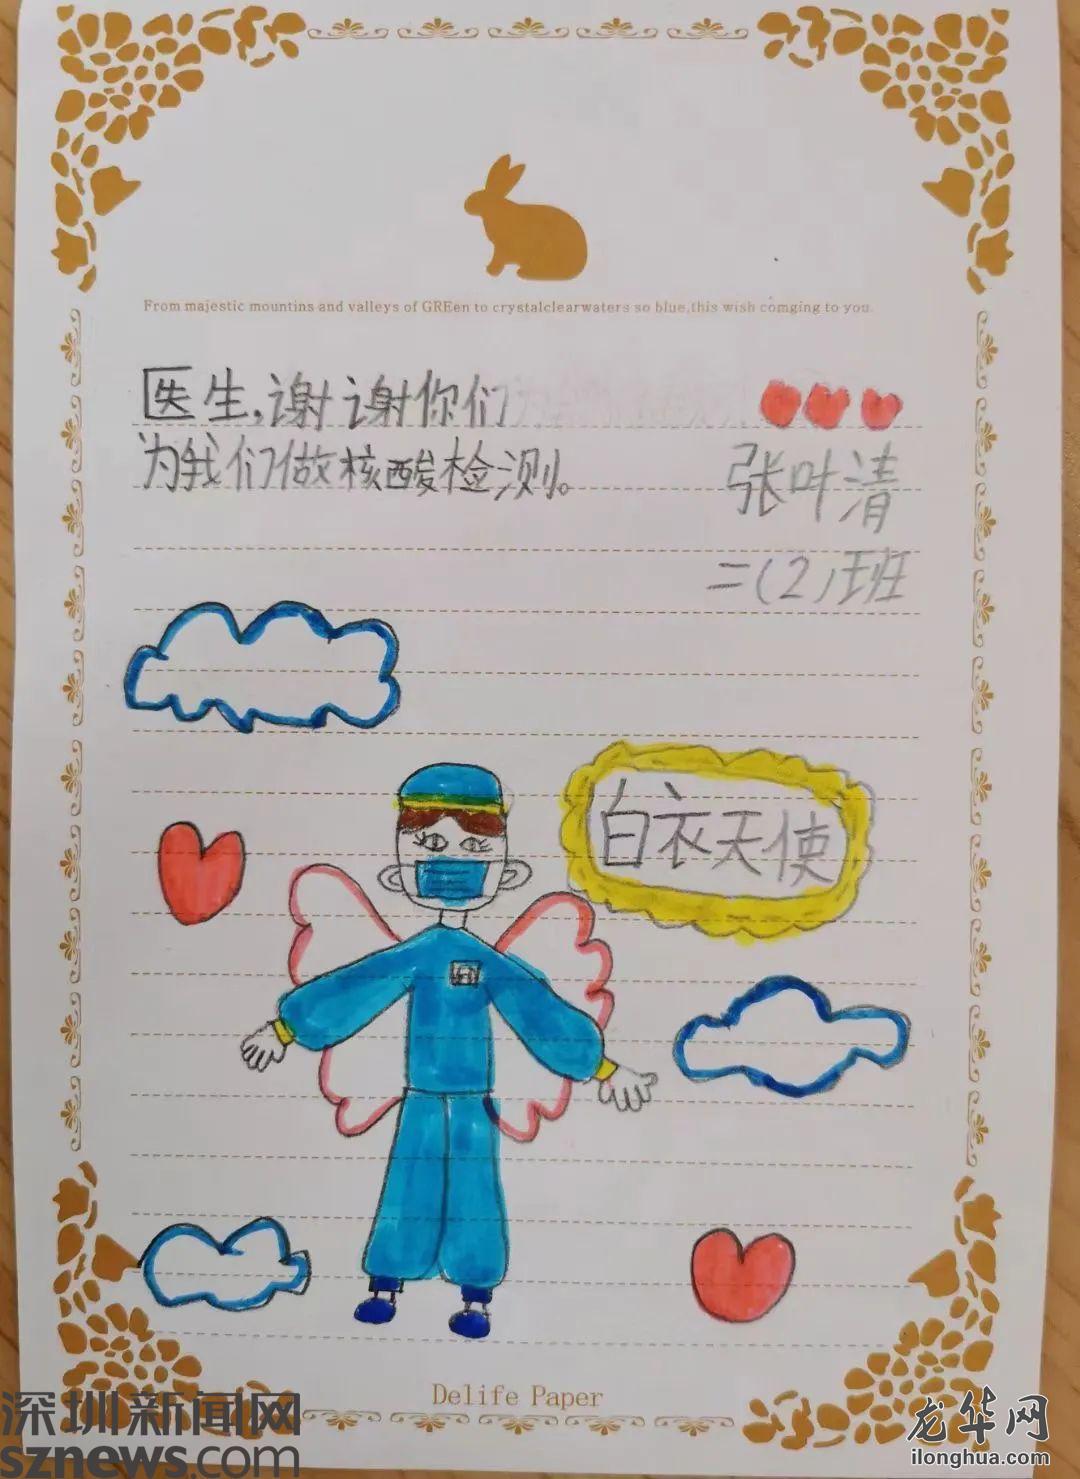 From majestic mountins and valleys of GREen to crystalclearwaters so blue,this wish comging to you.
医生,谢谢你们
为我们做核酸检测。
张叶清
二(2)班
白衣天使
Delife Paper
深圳新闻网
sznews.com
龙华网
ilonghua.com